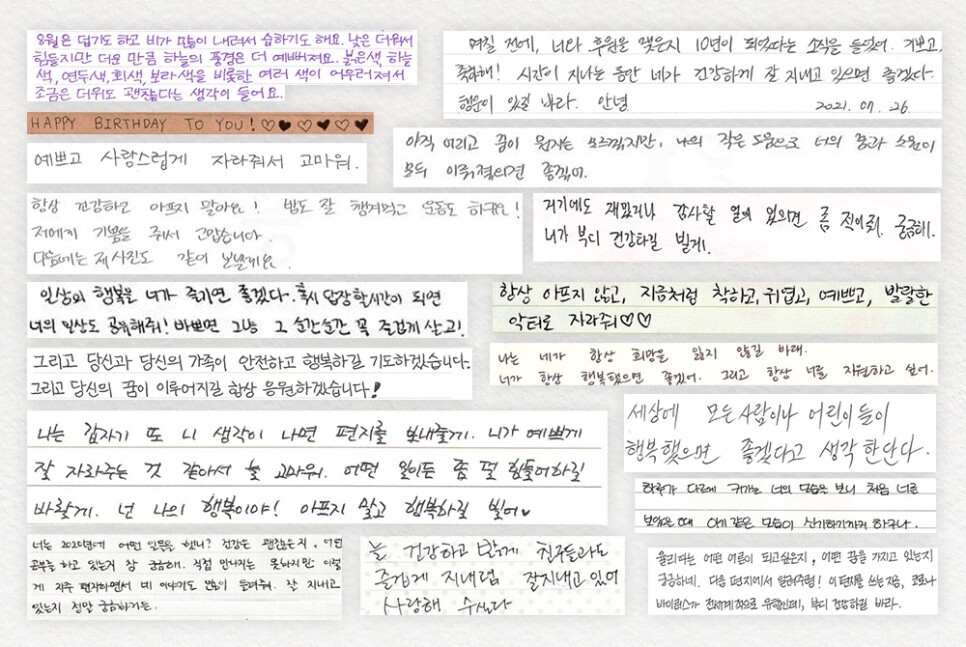 8월은 덥기도 하고 비가 많이 내려서 습하기도 해요. 낮은 더워서
힘들지만 더운 만큼 하늘의 풍경은 더 예뻐져요. 붉은색, 하늘
색, 연두색, 회색, 보라색을 비롯한 여러 색이 어우러져서
조금은 더워도 괜찮다는 생각이 들어요.
HAPPY BIRTHDAY TO YOU! ♡♥♡♥♡♥
예쁘고 사랑스럽게 자라줘서 고마워.
항상 건강하고 아프지 말아요! 밥도 잘 챙겨먹고 운동도 하구요!
저에게 기쁨을 줘서 고맙습니다.
다음에는 제 사진도 같이 보낼게요.
일상의 행복을 너가 즐기면 좋겠다. 혹시 답장할시간이 되면
너의 일상도 공유해줘! 바쁘면 그냥 그 순간순간 꼭 즐겁게 살고!
그리고 당신과 당신의 가족이 안전하고 행복하길 기도하겠습니다.
그리고 당신의 꿈이 이루어지길 항상 응원하겠습니다!
나는 갑자기 또 니 생각이 나면 편지를 보내줄게. 니가 예쁘게
잘 자라주는 것 같아서 늘 고마워. 어떤 일이든 좀 덜 힘들어하길
바랄게. 넌 나의 행복이야! 아프지 말고 행복하길 빌어♥
너는 2020년에 어떤 일들을 했니? 건강은 괜찮은지, 어떤
공부를 하고 있는지 참 궁금해. 직접 만나지는 못하지만 이렇
게 자주 편지하면서 네 이야기도 많이 들려줘. 잘 지내고
있는지 정말 궁금하거든.
늘 건강하고 밝게 친구들과도
즐겁게 지내렴 잘지내고 있어
사랑해
며칠 전에, 너와 후원을 맺은지 10년이 되었다는 소식을 들었어. 기쁘고,
축하해! 시간이 지나는 동안 네가 건강하게 잘 지내고 있으면 좋겠다.
행운이 있길 바라. 안녕 2021. 07. 26.
아직 어리고 꿈이 뭔지는 모르겠지만, 나의 작은 도움으로 너의 꿈과 소원이
모두 이뤄졌으면 좋겠어.
거기에도 재밌거나 감사할 일이 있으면 좀 적어줘. 궁금해.
니가 부디 건강하길 빌게.
항상 아프지 않고, 지금처럼 착하고, 귀엽고, 예쁘고, 발랄한
악터로 자라줘♡♡
나는 네가 항상 희망을 잃지 않길 바래.
너가 항상 행복했으면 좋겠어. 그리고 항상 너를 지원하고 싶어.
세상에 모든 사람이나 어린이들이
행복했으면 좋겠다고 생각한단다.
하루가 다르게 커가는 너의 모습을 보니 처음 너를
보았을때 아기같은 모습이 신기하기까지 하구나.
울리마는 어떤 어른이 되고싶은지, 어떤 꿈을 가지고 있는지
궁금하네. 다음 편지에서 알려주렴! 이 편지를 쓰는 지금, 코로나
바이러스가 전세계적으로 유행인데, 부디 건강하길 바라.